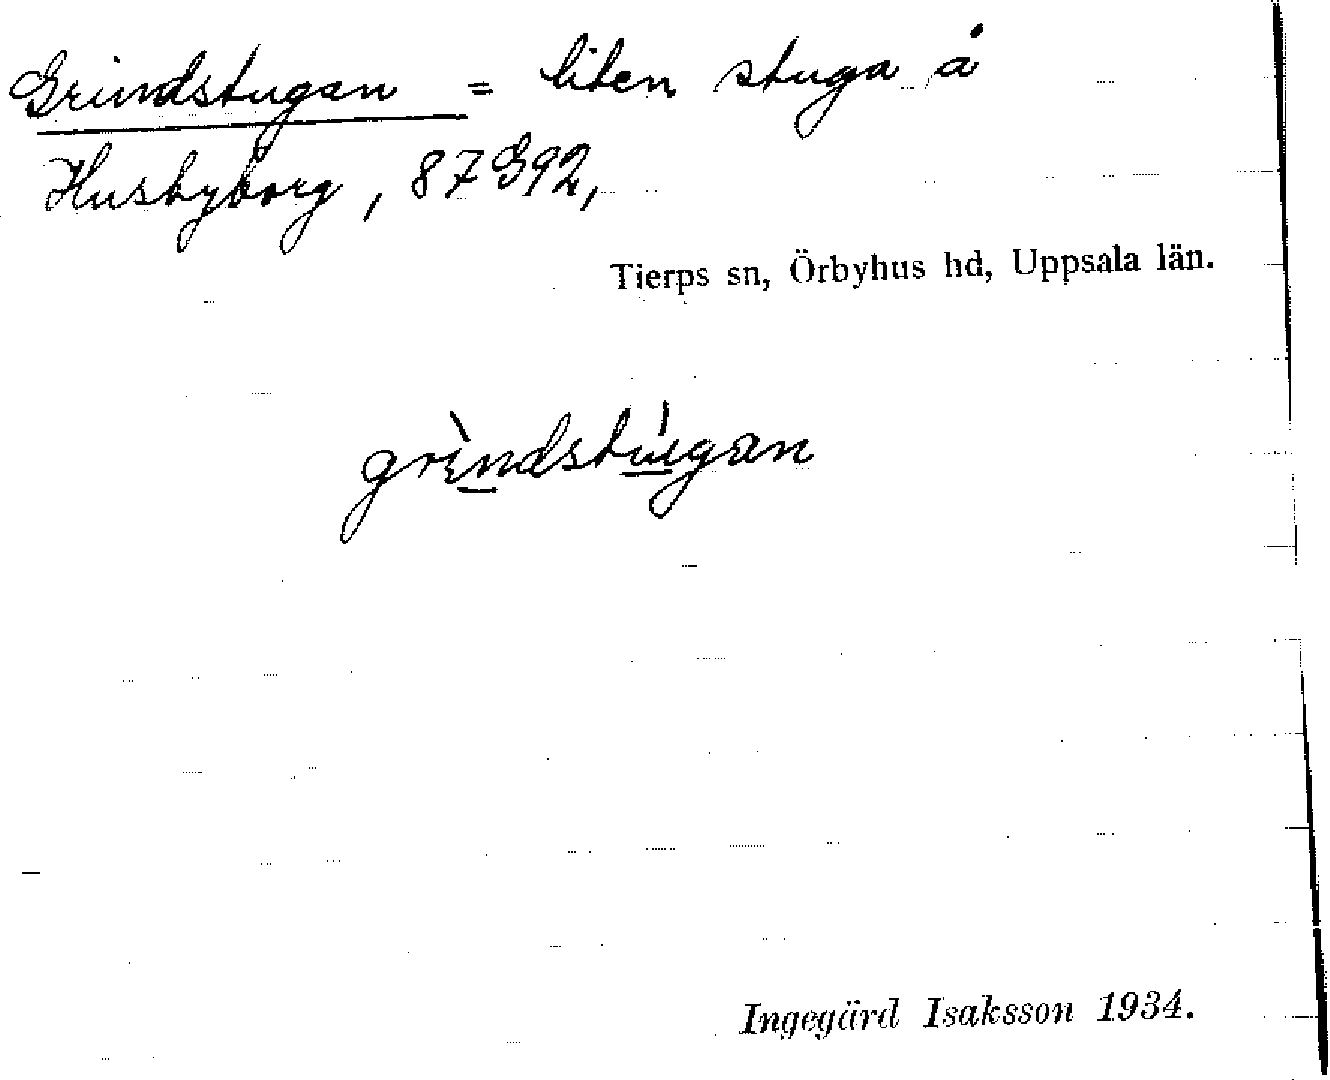 Grindstugan = liten stuga å
Husbyborg, 87 G92,
Tierps sn, Örbyhus hd, Uppsala län.
grìndstúgan
Ingegärd Isaksson 1934.